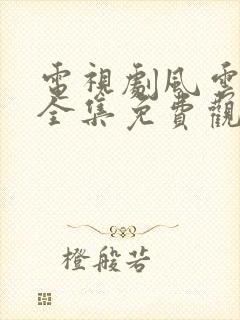 電視劇風雲
全集免費觀
橙般若